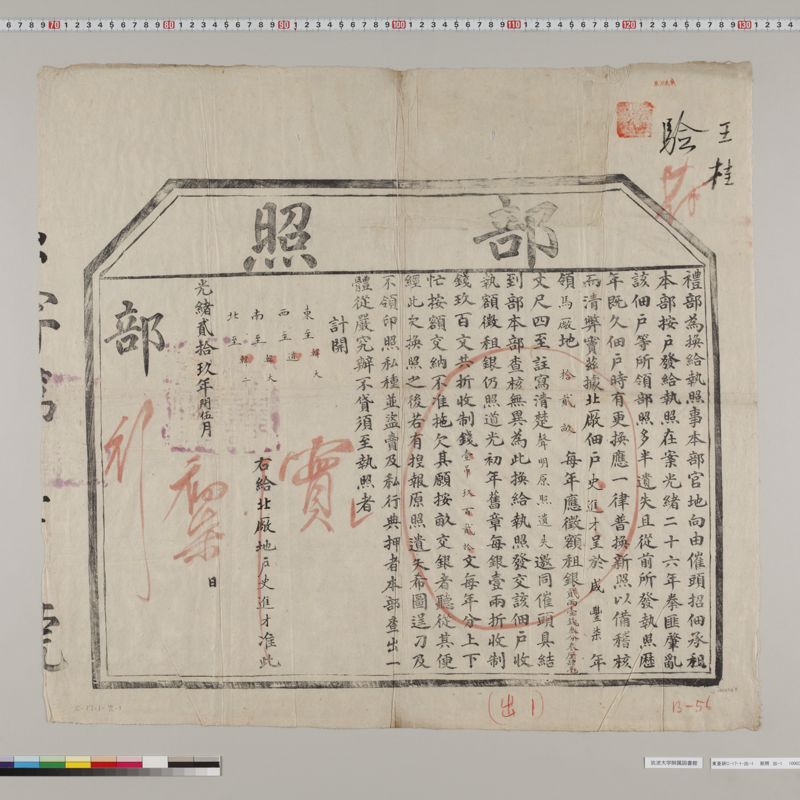 王桂
驗
部照
禮部為換給執照事本部官地向由催頭招佃承租
本部按戶發給執照在案光緒二十六年拳匪肇亂
該佃戶等所領部照多半遺失且從前所發執照歷
年既久佃戶時有更換應一律普換新照以備稽核
而清弊實茲據北厰佃戶史進才呈於咸豐柒年
領馬厰地拾貳畝每年應徵額租銀
丈尺四至註寫清楚聲明原照遺失邀同催頭具結
到部本部查核無異為此換給執照發交該佃戶收
執額徵租銀仍照道光初年舊章每銀壹兩折收制
錢玖百文共折收制錢壹吊玖百貳拾文每年分上下
忙按額交納不准拖欠其願按畝交銀者聽從其便
經此次換照之後若有捏報原照遺失布圖逞刁及
不領印照私種並盜賣及私行典押者本部查出一
體從嚴究辦不貸須至執照者
計開
東至韓大
西至道
南至韓大
北至韓二
右給北厰地戶史進才准此
實
光緒貳拾玖年閏伍月初柒日
部
行
(出1)
B-56
筑波大学附属図書館